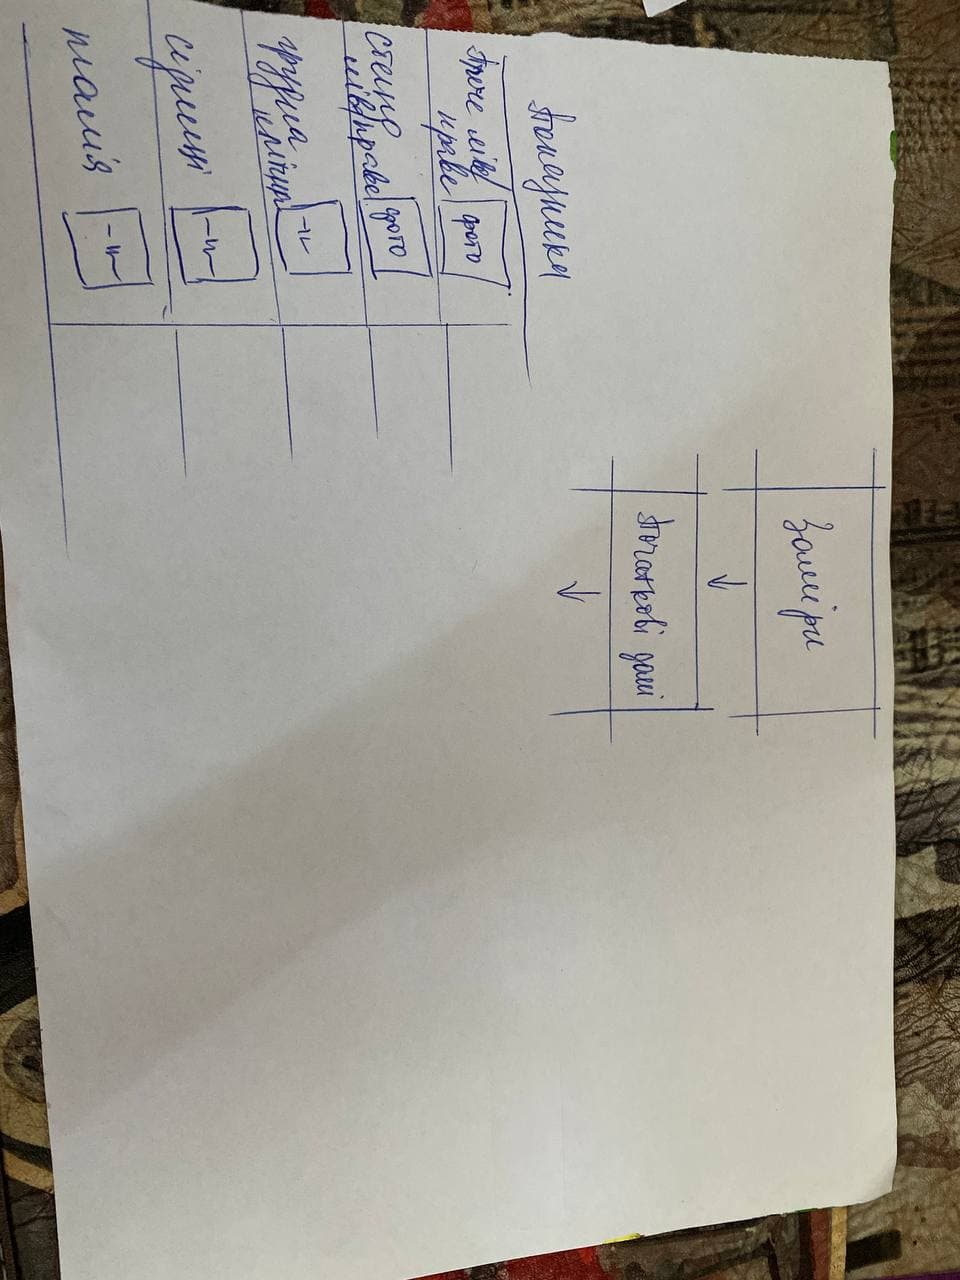 Заміри
Початкові дані
Показники
Плече ліве/
праве
фото
стегно
ліве/праве
фото
грудна
клітина
-||-
сідниці
-||-
талія
-||-